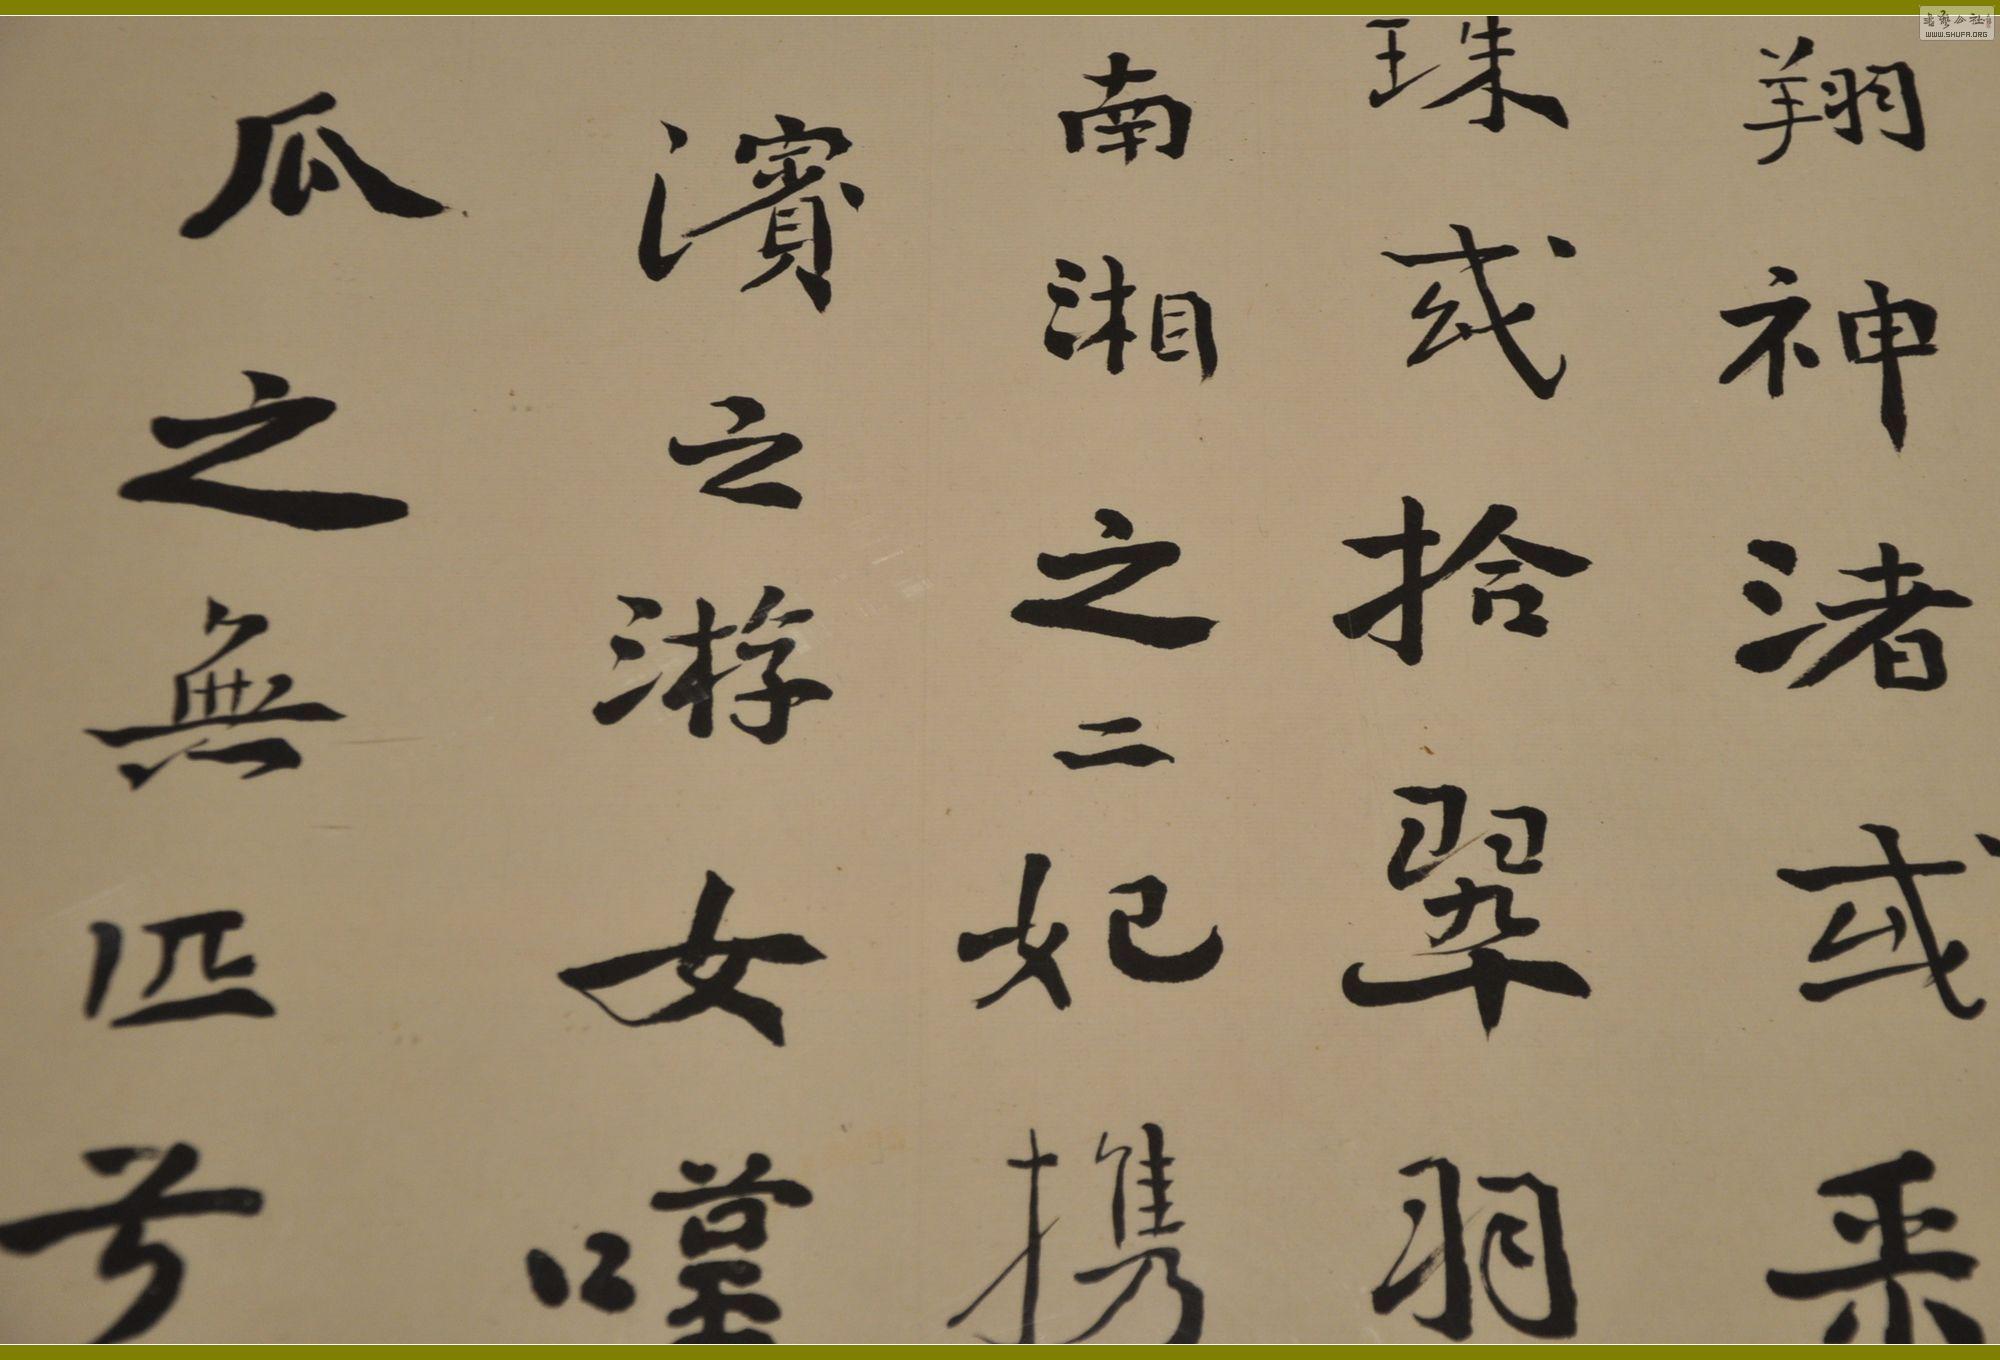 翔神渚或采
珠或拾翠羽
南湘之二妃携
濱之游女嘆
瓜之無匹兮
WWW.SHUFA.ORG